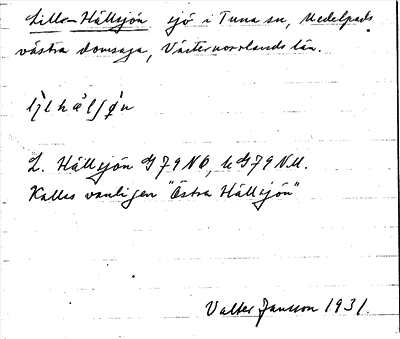 Lille-Hällsjön sjö i Tuna sn, Medelpads
västra domsaga, Västernorrlands län.
L. Hällsjön G79NO, k G79NU.
Kallas vanligen "Östra Hällsjön"
Valter Jansson 1931.